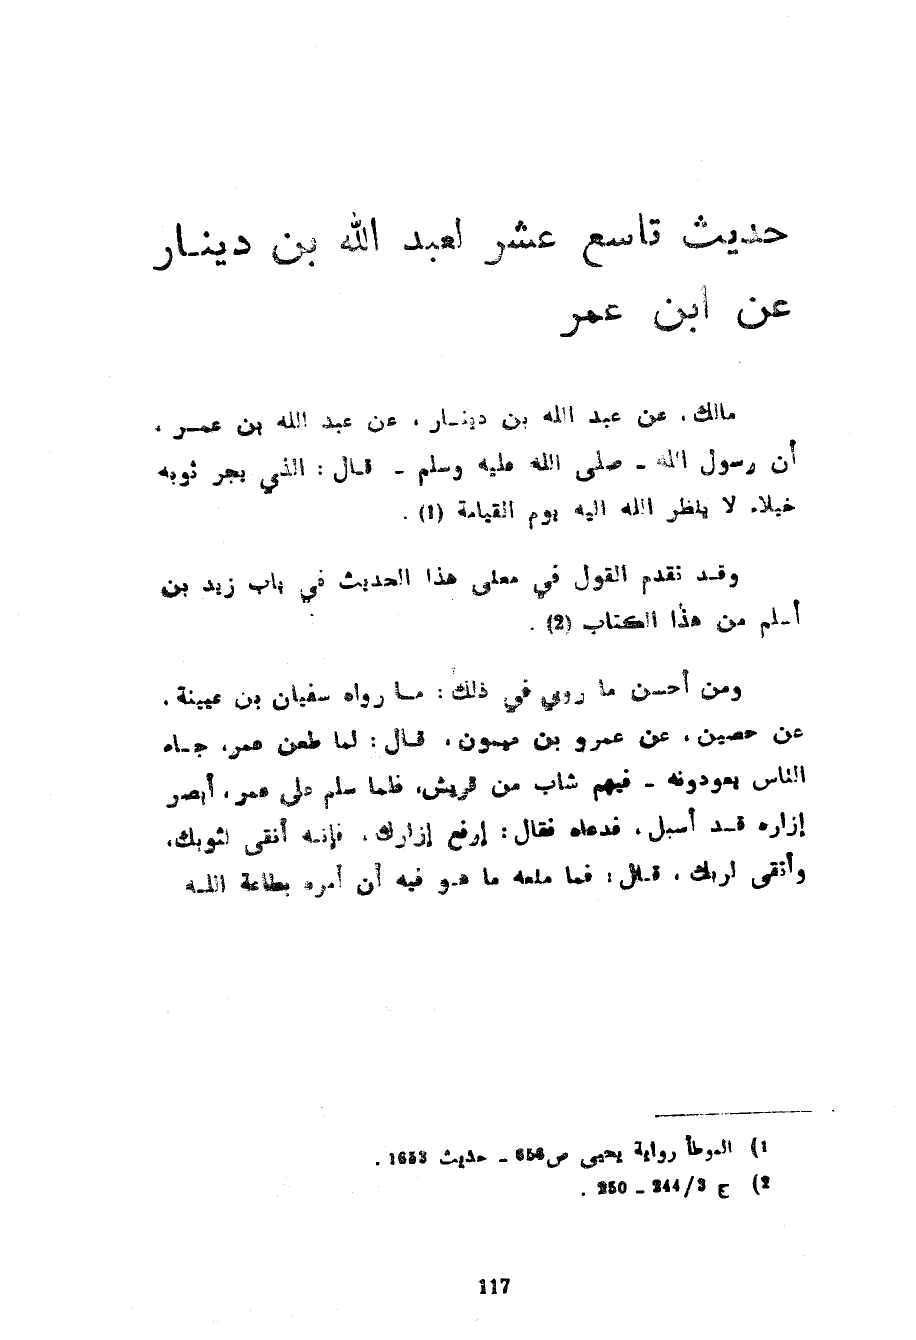 حديث تاسع عشر لعبد الله بن دينـار
عن ابن عمر
مالك، عن عبد الله بن دينـار، عن عبد الله بن عمـر،
أن رسول الله ـ صلى الله عليه وسلم ـ قـال: الذي يجر ثوبه
خيلاء لا ينظر الله اليه يوم القيامة (1).
وقـد تقدم القول في معنى هذا الحديث في باب زيد بن
أسلم من هذا الكتاب (2).
ومن أحسن ما روي في ذلك: مـا رواه سفيان بن عيينة،
عن حصين، عن عمرو بن ميمون، قـال: لما طعن عمر، جـاء
الناس يعودونه ـ فيهم شاب من قريش، فلما سلم على عمر، أبصر
إزاره قـد أسبل، فدعاه فقال: إرفع إزارك، فإنـه أنقى لثوبك،
وأتقى لربك، قـال: فما منعه ما هـو فيه أن أمره بطاعة اللـه
1) الموطأ رواية يحيى ص656 ـ حديث 1653.
2) ج 3/244 ـ 250.
117